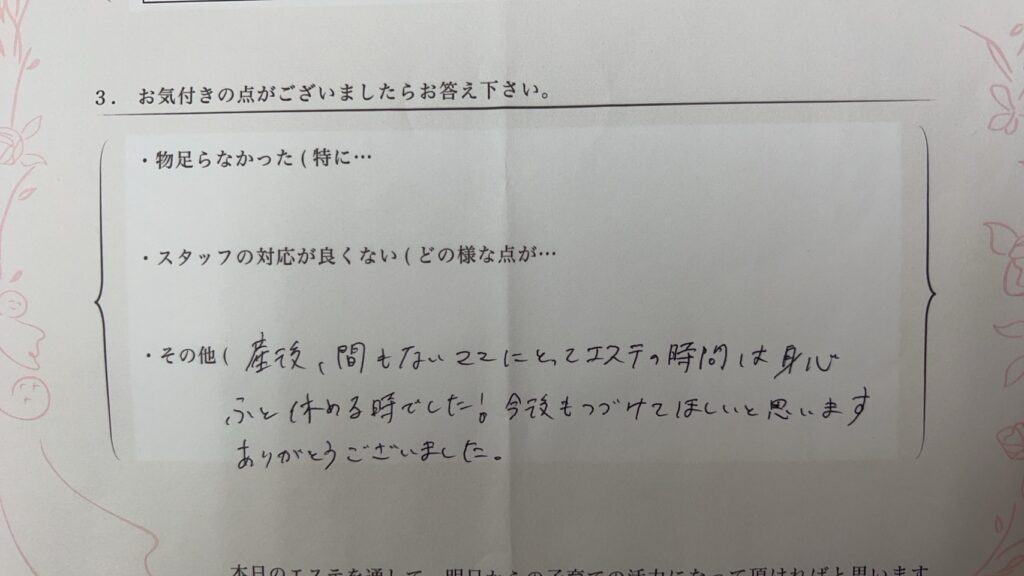 3． お気付きの点がございましたらお答え下さい。
・物足らなかった ( 特に…
・スタッフの対応が良くない ( どの様な点が…
・その他 ( 産後、間もないママにとってエステの時間は身心
ふと休める時でした！今後もつづけてほしいと思います
ありがとうございました。
本日のエステを通して、明日からの子育ての活力になって頂ければと思います